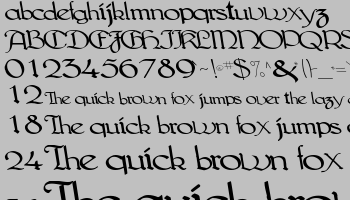 abcdefghijklmnopqrstuvwxyz
ABCDEFGHIJKLMNOPQRS
0123456789 ~!@#$%^&()_=
12 The quick brown fox jumps over the lazy
18 The quick brown fox jumps
24 The quick brown fox
The quick